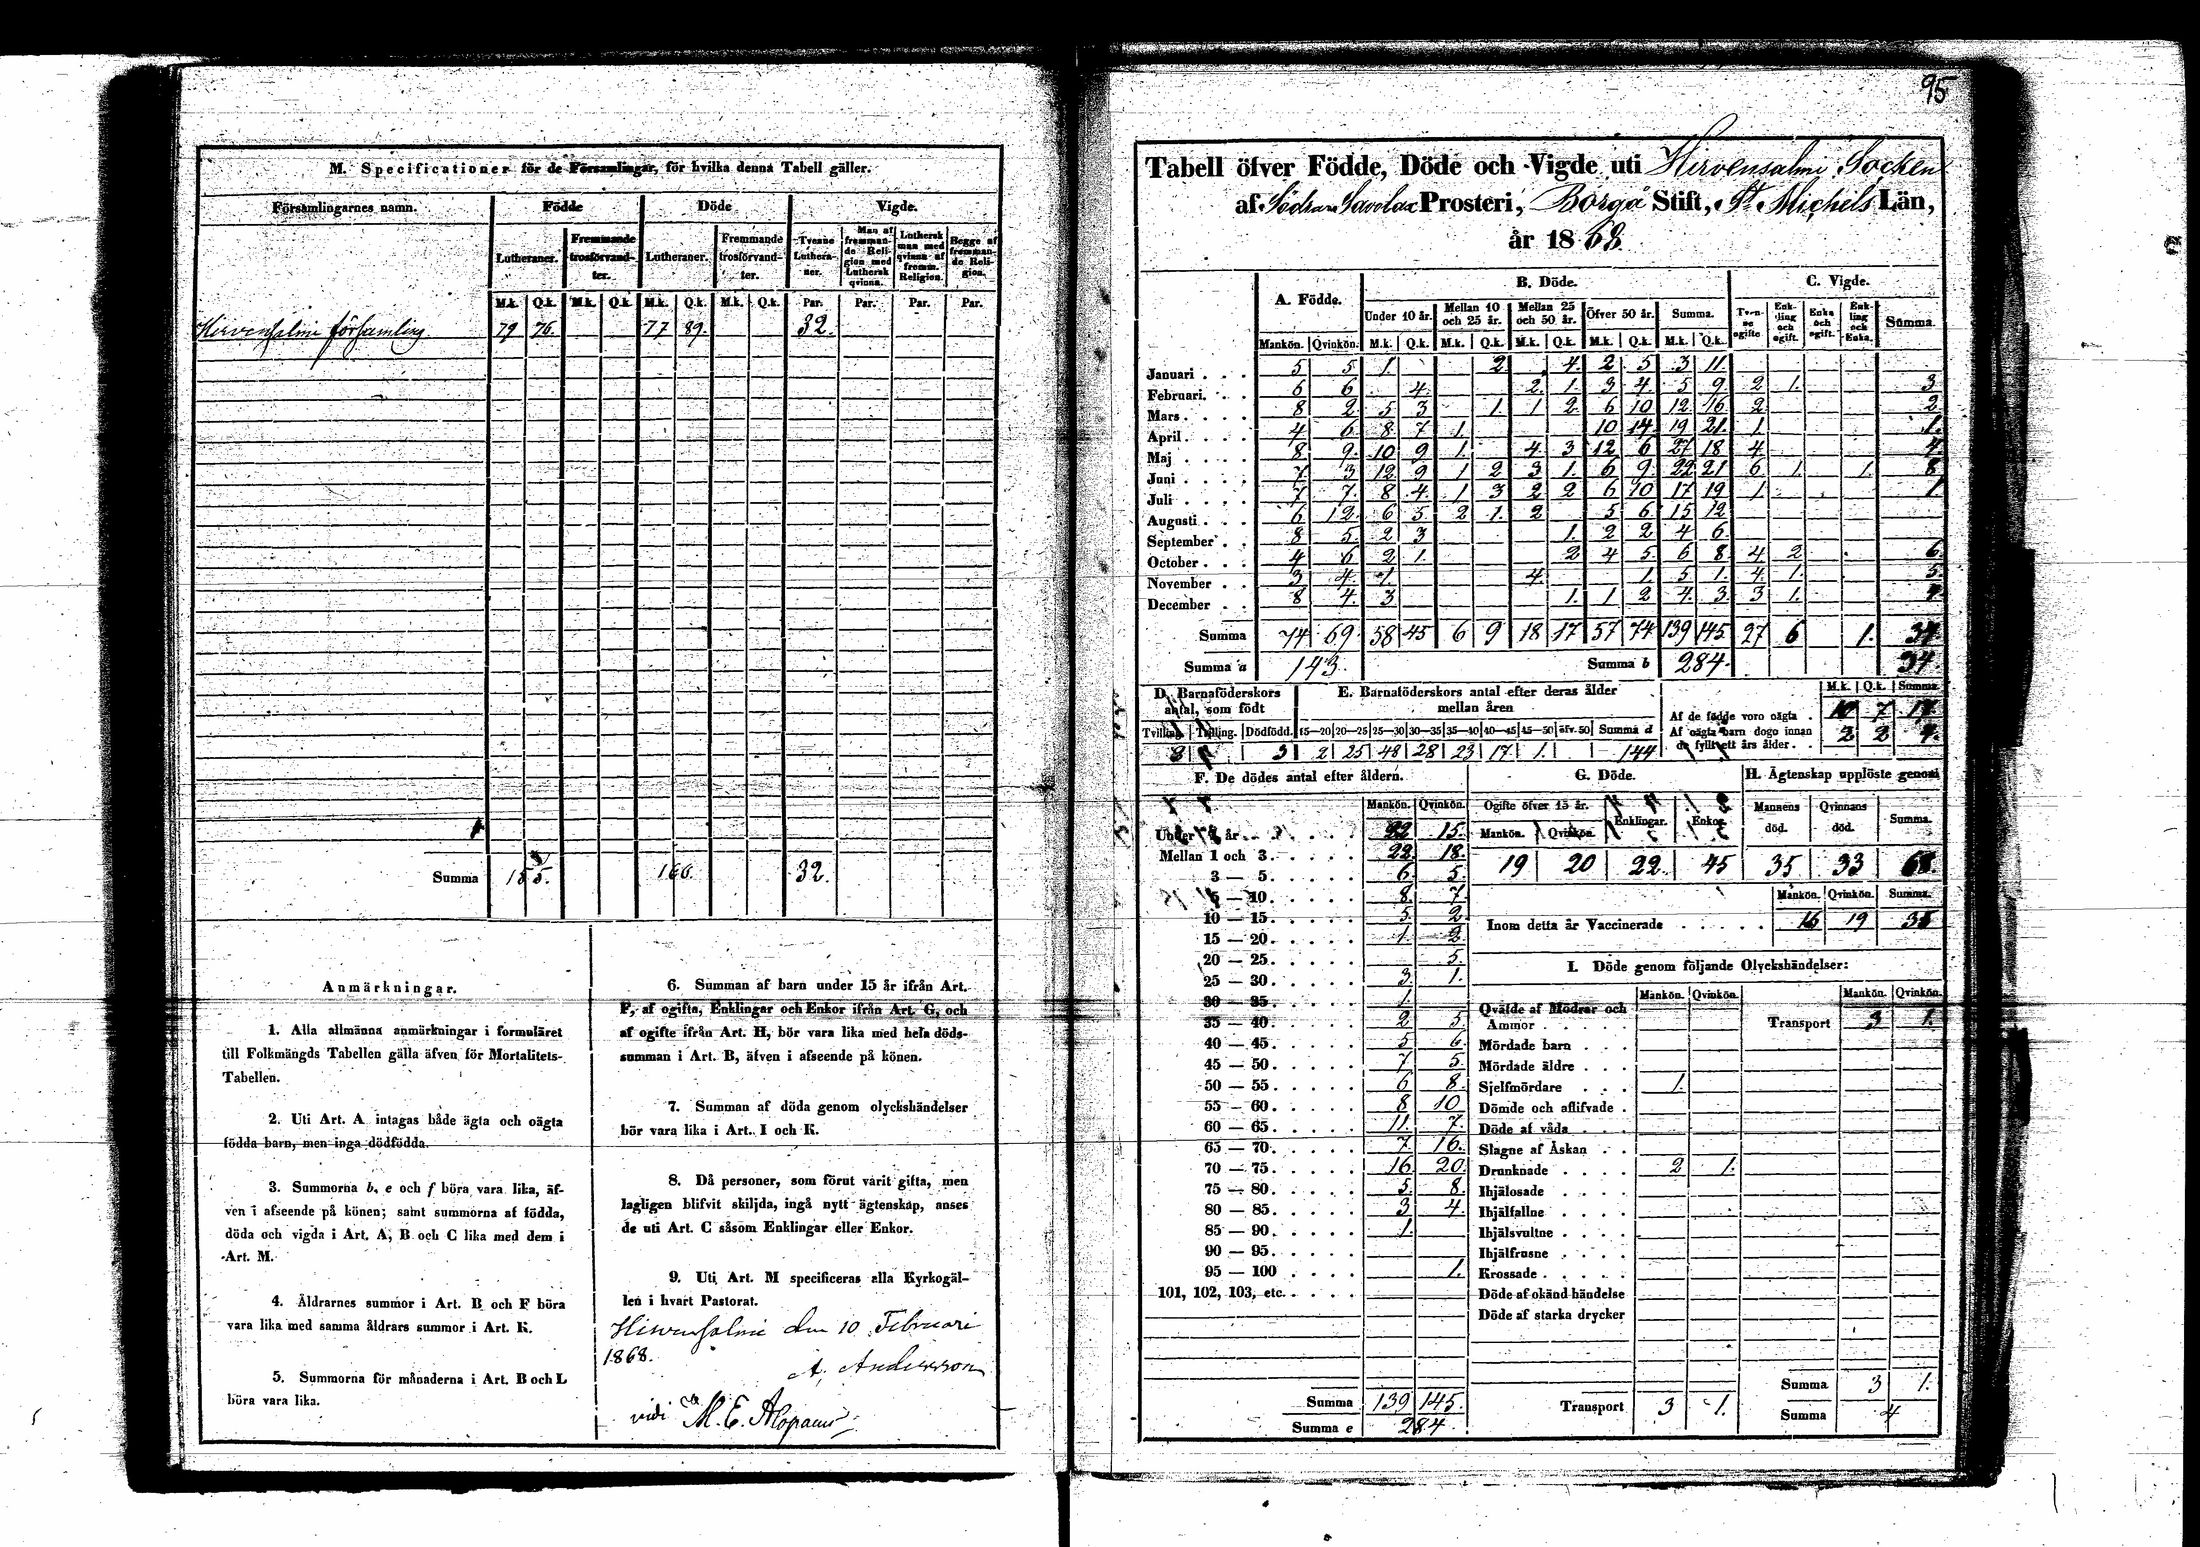 M. Specificationer för de Församlingar, för hvilka denna Tabell gäller.
Församlingarnes namn. Födde Döde Vigde.
Lutheraner. Fremmande trosförvandter. Lutheraner. Fremmande trosförvandter. Tvenne Lutheraner. Man af fremmande Religion med Luthersk qvinna. Luthersk man med qvinna af fremm. Religion. Begge af fremmande Religion.
M.k. Q.k. M.k. Q.k. M.k. Q.k. M.k. Q.k. Par. Par. Par. Par.
Hirvensalmi församling 79 76. 77 89. 32.
Summa 155. 166. 32.
Anmärkningar.
1. Alla allmänna anmärkningar i formuläret
till Folkmängds Tabellen gälla äfven för Mortalitets-
Tabellen.
2. Uti Art. A intagas både ägta och oägta
födda barn, men inga dödfödda.
3. Summorna b, e och f böra vara lika, äf-
ven i afseende på könen; samt summorna af födda,
döda och vigda i Art. A, B och C lika med dem i
Art. M.
4. Åldrarnes summor i Art. B och F böra
vara lika med samma åldrars summor i Art. K.
5. Summorna för månaderna i Art. B och L
böra vara lika.
6. Summan af barn under 15 år ifrån Art.
F, af ogifta, Enklingar och Enkor ifrån Art. G, och
af ogifte ifrån Art. H, bör vara lika med hela döds-
summan i Art. B, äfven i afseende på könen.
7. Summan af döda genom olyckshändelser
bör vara lika i Art. I och K.
8. Då personer, som förut varit gifta, men
lagligen blifvit skiljda, ingå nytt ägtenskap, anses
de uti Art. C såsom Enklingar eller Enkor.
9. Uti Art. M specificeras alla Kyrkogäl-
len i hvart Pastorat.
Hirvensalmi den 10 Februari
1868.
A. Andersson
vidi M. E. Alopaeus
95
Tabell öfver Födde, Döde och Vigde uti Hirvensalmi Socken
af Södra Savolax Prosteri, Borgå Stift, St Michels Län,
år 1868.
A. Födde. B. Döde. C. Vigde.
Under 10 år. Mellan 10 och 25 år. Mellan 25 och 50 år. Öfver 50 år. Summa. Tvenne ogifte Enkling och ogift. Enka och ogift. Enkling och Enka. Summa.
Mankön. Qvinkön. M.k. Q.k. M.k. Q.k. M.k. Q.k. M.k. Q.k. M.k. Q.k.
Januari 5 5 1. 2 4. 2 5 3 11.
Februari. 6 6 4. 2. 1. 3 4. 5 9. 2 1. 3
Mars 8 2 5 3 1. 1 2. 6 10 12 16. 2 2
April 4 6 8 7 1 10 14. 19 21. 1. 1.
Maj 8 9. 10 9 1. 4. 3 12 6 27 18 4 4.
Juni 7 3 12 9 1 2 3 1. 6 9. 22 21 6 1 1. 8
Juli 7 7. 8 4. 1 3 2 2 6 10 17 19 1 1.
Augusti 6 12. 6 5 2 1. 2 5 6 15 12
September 8 5. 2 3 1. 2 2 4 6.
October 4 6 2 1. 2 4 5. 6 8 4 2 6
November 3 4. 1. 4. 1. 5 1. 4. 1. 5.
December 8 4. 3 1. 1 2 4. 3. 3 1. 4.
Summa 74 69. 58 45 6 9 18 17 57 74 139 145 27 6 1. 34
Summa a 143. Summa b 284. 34.
D. Barnaföderskors antal, som födt
E. Barnaföderskors antal efter deras ålder mellan åren
Tvilling. Trilling. Dödfödd. 15—20 20—25 25—30 30—35 35—40 40—45 45—50 öfv. 50 Summa d
3 2 25 48 28 23 17 1. 144
M.k. Q.k. Summa
Af de födde voro oägta 10 7 17.
Af oägta barn dogo innan de fyllt ett års ålder 2 2 4.
F. De dödes antal efter åldern.
Mankön. Qvinkön.
Under 1 år 22 15.
Mellan 1 och 3. 22. 18.
3 — 5. 6 5.
5 — 10. 8. 7.
10 — 15. 5. 2
15 — 20. 1. 2
20 — 25. 5.
25 — 30. 3 1.
30 — 35. 1.
35 — 40. 2 5
40 — 45. 5 6.
45 — 50. 7 5.
50 — 55. 6 8.
55 — 60. 8 10
60 — 65. 11. 7.
65 — 70. 7. 16.
70 — 75. 16. 20.
75 — 80. 5. 8.
80 — 85. 3 4.
85 — 90. 1.
90 — 95.
95 — 100 1.
101, 102, 103, etc.
Summa 139 145.
Summa e 284.
G. Döde.
Ogifte öfver 15 år. Enklingar. Enkor.
Mankön. Qvinkön.
19 20 22. 45
H. Ägtenskap upplöste genom
Mannens död. Qvinnans död. Summa.
35 33 68.
Mankön. Qvinkön. Summa.
Inom detta år Vaccinerade 16 19 35
I. Döde genom följande Olyckshändelser:
Mankön. Qvinkön. Mankön. Qvinkön.
Qväfde af Mödrar och Ammor
Transport 3 1.
Mördade barn
Mördade äldre
Sjelfmördare 1.
Dömde och aflifvade
Döde af våda
Slagne af Åskan
Drunknade 2 1.
Ihjälosade
Ihjälfallne
Ihjälsvultne
Ihjälfrusne
Krossade
Döde af okänd händelse
Döde af starka drycker
Transport 3 1.
Summa 3 1.
Summa 4